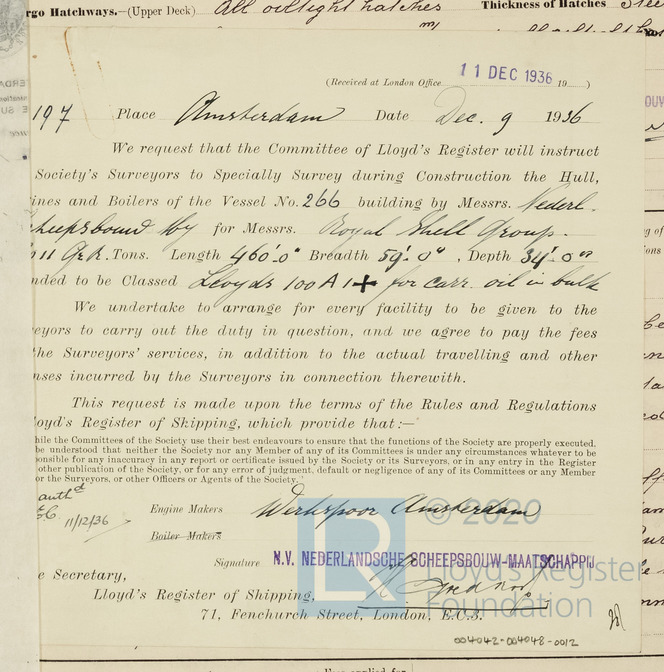 rgo Hatchways.—(Upper Deck) All oiltight hatches Thickness of Hatches Stee
(Received at London Office 11 DEC 1936 19 )
197 Place Amsterdam Date Dec. 9 1936
We request that the Committee of Lloyd's Register will instruct
Society's Surveyors to Specially Survey during Construction the Hull,
ines and Boilers of the Vessel No. 266 building by Messrs. Nederl.
heepsbouw My for Messrs. Royal Shell Group.
11 Gr.R. Tons. Length 460'.0" Breadth 59'.0", Depth 34'.0"
nded to be Classed Lloyds 100 A 1 ✚ for carr. oil in bulk
We undertake to arrange for every facility to be given to the
eyors to carry out the duty in question, and we agree to pay the fees
the Surveyors' services, in addition to the actual travelling and other
nses incurred by the Surveyors in connection therewith.
This request is made upon the terms of the Rules and Regulations
loyd's Register of Shipping, which provide that:—
hile the Committees of the Society use their best endeavours to ensure that the functions of the Society are properly executed,
be understood that neither the Society nor any Member of any of its Committees is under any circumstances whatever to be
ponsible for any inaccuracy in any report or certificate issued by the Society or its Surveyors, or in any entry in the Register
other publication of the Society, or for any error of judgment, default or negligence of any of its Committees or any Member
or the Surveyors, or other Officers or Agents of the Society.
auth^d
11/12/36
Engine Makers Werkspoor Amsterdam
© 2020
Boiler Makers
Signature N.V. NEDERLANDSCHE SCHEEPSBOUW-MAATSCHAPPIJ
LR Lloyd's Register
Foundation
e Secretary,
Lloyd's Register of Shipping,
71, Fenchurch Street, London, E.C.3.
004042-004048-0012